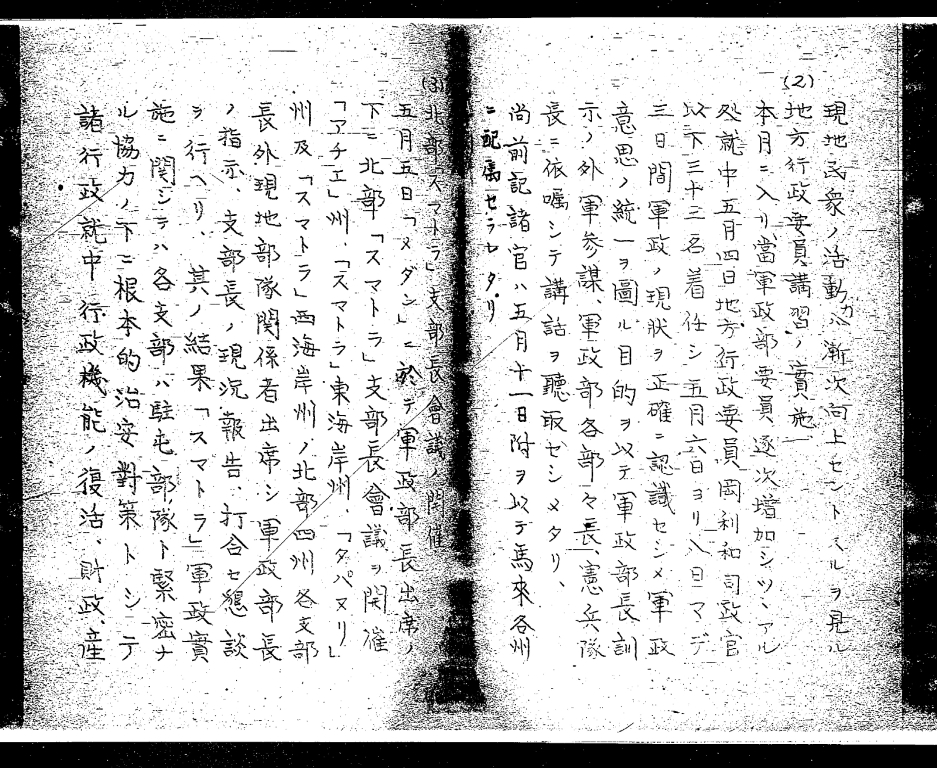 現地民衆ノ活動力ハ漸次向上セントスルヲ見ル
(2)
地方行政要員講習ノ實施
本月ニ入リ當軍政部要員逐次増加シツヽアル
処就中五月四日地方行政要員岡利和司政官
以下三十三名着任シ五月六日ヨリ八日マデ
三日間軍政ノ現状ヲ正確ニ認識セシメ軍政
意思ノ統一ヲ圖ル目的ヲ以テ軍政部長訓
示ノ外軍参謀、軍政部各部々長、憲兵隊
長ニ依嘱シテ講話ヲ聽取セシメタリ、
尚前記諸官ハ五月十一日附ヲ以テ馬來各州
ニ配属セラレタリ
(3)
北部「スマトラ」支部長會議ノ開催
五月五日「メダン」ニ於テ軍政部長出席ノ
下ニ北部「スマトラ」支部長會議ヲ開催
「アチエ」州、「スマトラ」東海岸州、「タパヌリ」
州及「スマトラ」西海岸州ノ北部四州各支部
長外現地部隊関係者出席シ軍政部長
ノ指示、支部長ノ現況報告、打合セ懇談
ヲ行ヘリ、其ノ結果「スマトラ」軍政實
施ニ関シテハ各支部ハ駐屯部隊ト緊密ナ
ル協力ノ下ニ根本的治安對策トシテ
諸行政就中行政機能ノ復活、財政、産